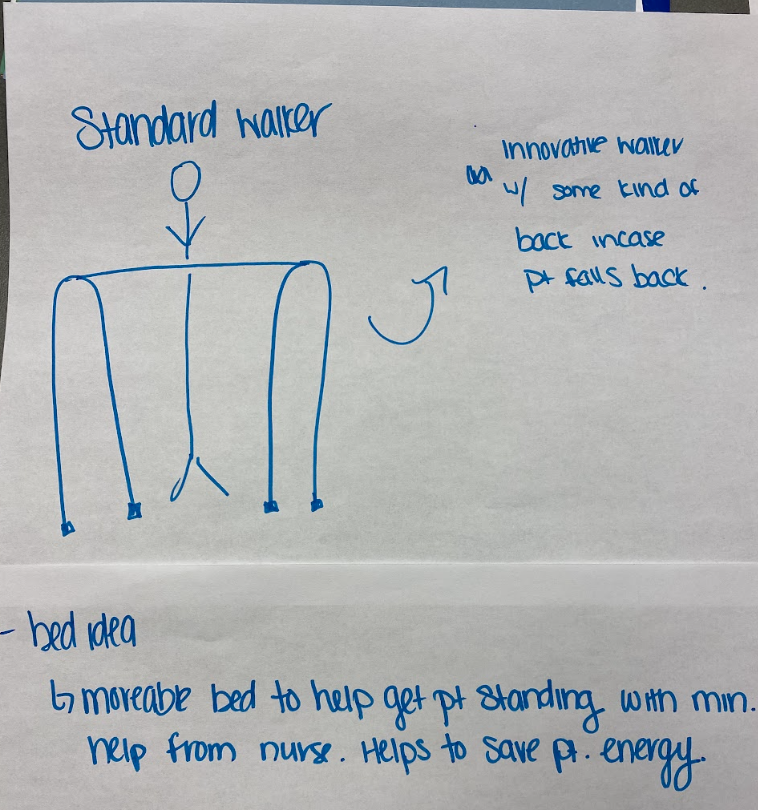 Standard walker
Innovative walker
w/ some kind of
back incase
pt falls back.
- bed idea
↳ moveable bed to help get pt standing with min.
help from nurse. Helps to save pt. energy.